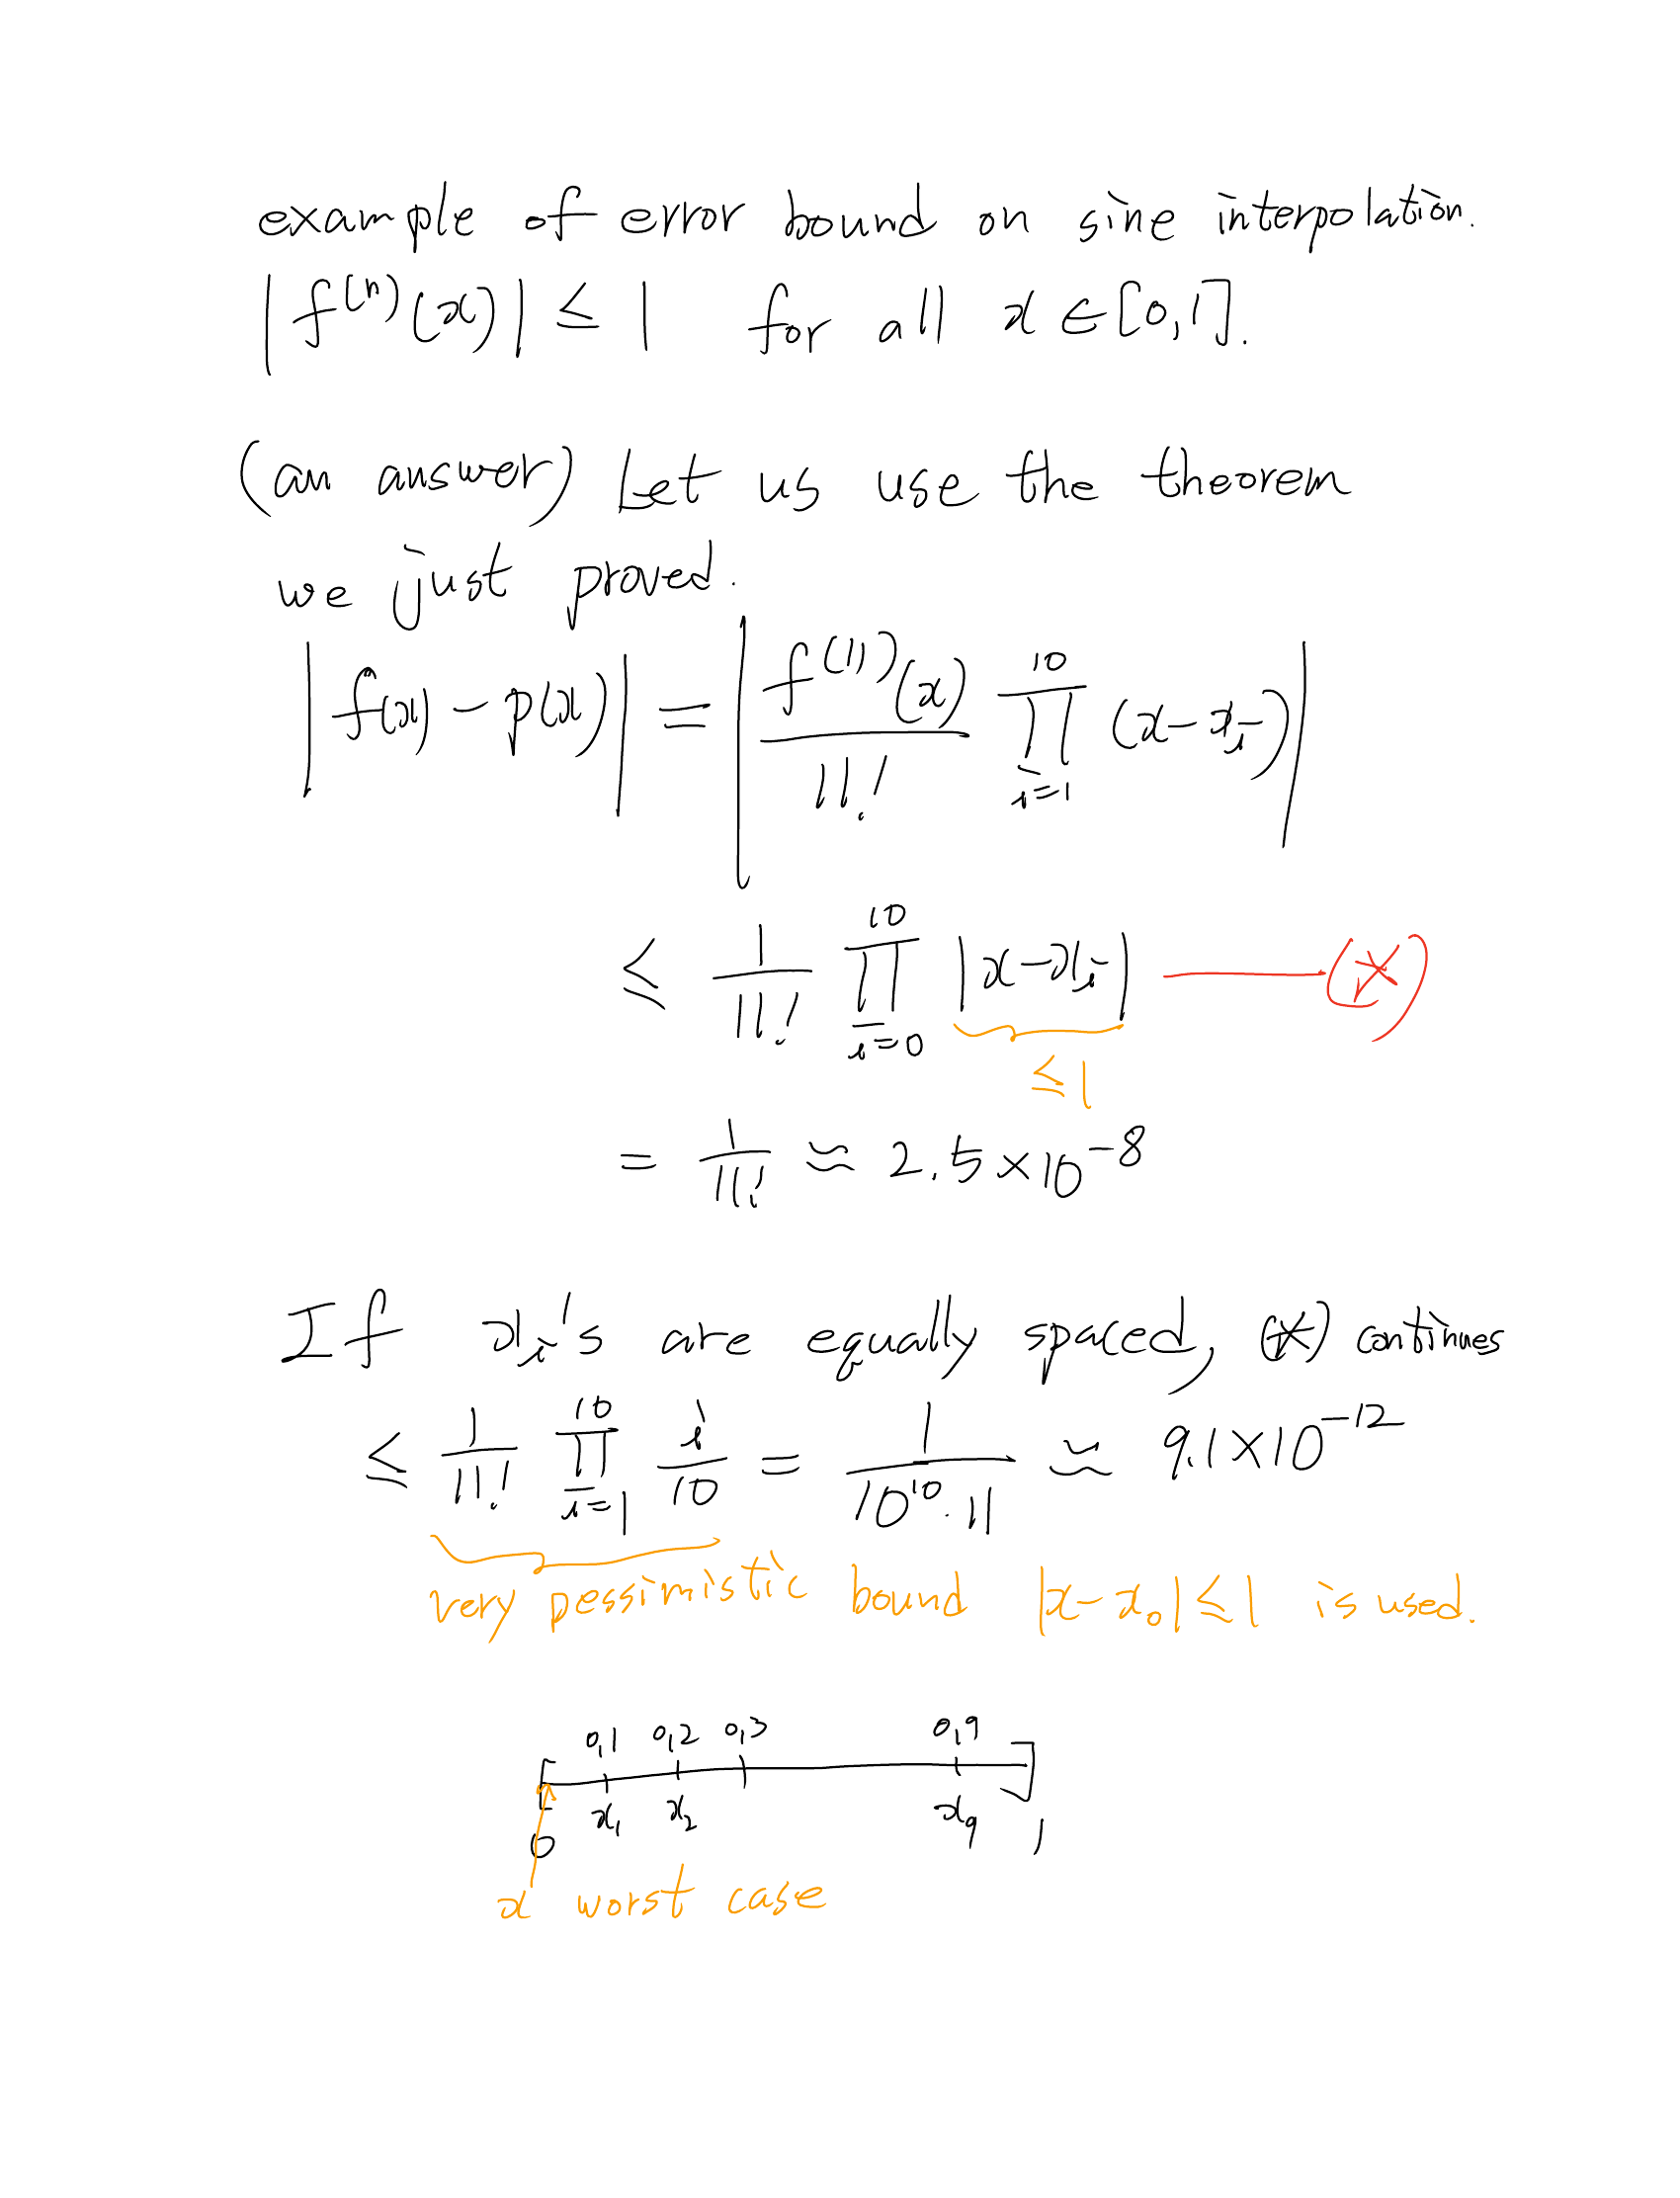 example of error bound on sine interpolation.
|f^(n)(x)| ≤ 1 for all x ∈ [0,1].
(an answer) Let us use the theorem
we just proved.
|f(x) - p(x)| = | f^(11)(x) / 11! ∏_{i=1}^{10} (x - x_i) |
≤ 1/11! ∏_{i=0}^{10} |x - x_i| — (*)
≤ 1
= 1/11! ≈ 2.5 × 10^-8
If x_i's are equally spaced, (*) continues
≤ 1/11! ∏_{i=1}^{10} i/10 = 1/(10^10 · 11) ≈ 9.1 × 10^-12
very pessimistic bound |x - x_0| ≤ 1 is used.
0.1 0.2 0.3 0.9
[ ]
x_1 x_2 x_9
0 1
x worst case